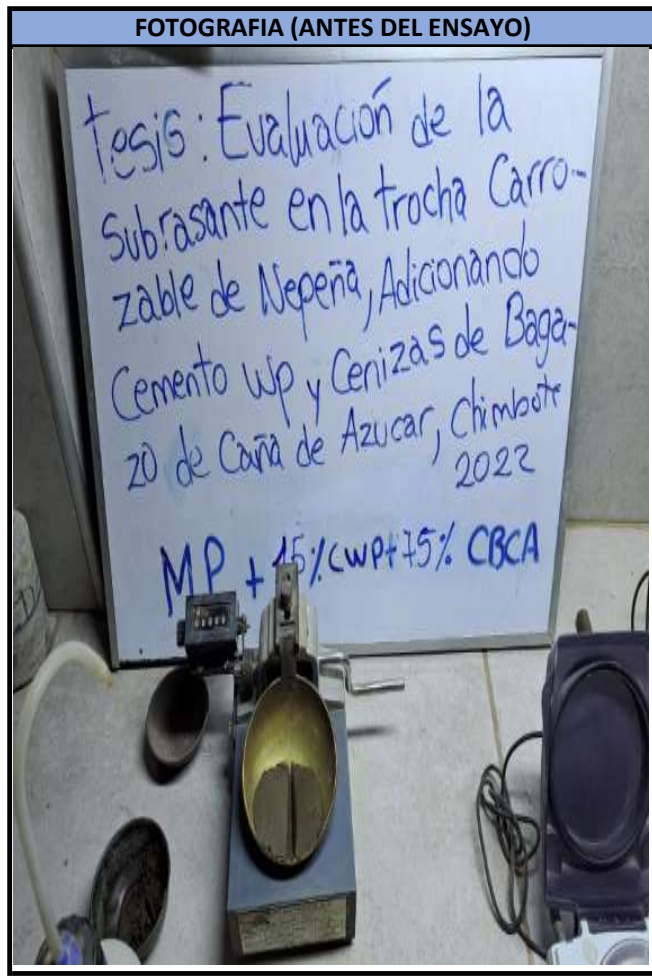 FOTOGRAFIA (ANTES DEL ENSAYO)
Tesis: Evaluación de la
Subrasante en la trocha Carro-
zable de Nepeña, Adicionando
Cemento WP y Cenizas de Baga-
zo de Caña de Azucar, Chimbote
2022
MP + 15%CWP+75% CBCA